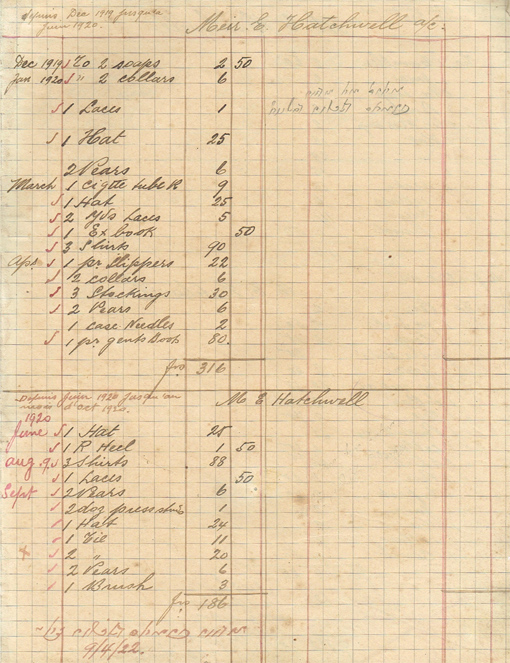 depuis Dec 1919 jusqua
Juin 1920.
Meir. E. Hatchwell a/c.
Dec 1919 1 To 2 soaps 2 50
Jan 1920 s " 2 collars 6
s 1 Laces 1
s 1 Hat 25
2 Pears 6
March 1 cigtte tube R 9
s 1 Hat 25
s 2 Yds Laces 5
s 1 Ex book 50
s 3 Shirts 90
Apr. s 1 pr Slippers 22
s 2 collars 6
s 3 Stockings 30
s 2 Pears 6
1 case Needles 2
s 1 pr gents Boots 80.
frs 316
Depuis Juin 1920 jusqu'au
mois d'oct 1920.
M. E Hatchwell
1920
June s 1 Hat 25
s 1 R Heel 1 50
Aug. 9. s 3 Shirts 88
s 1 Laces 50
Sept s 2 Pears 6
2 doz press studs 1
1 Hat 24
1 Tie 11
+ 2 " 20
2 Pears 6
1 Brush 3
frs 186
9/4/22.